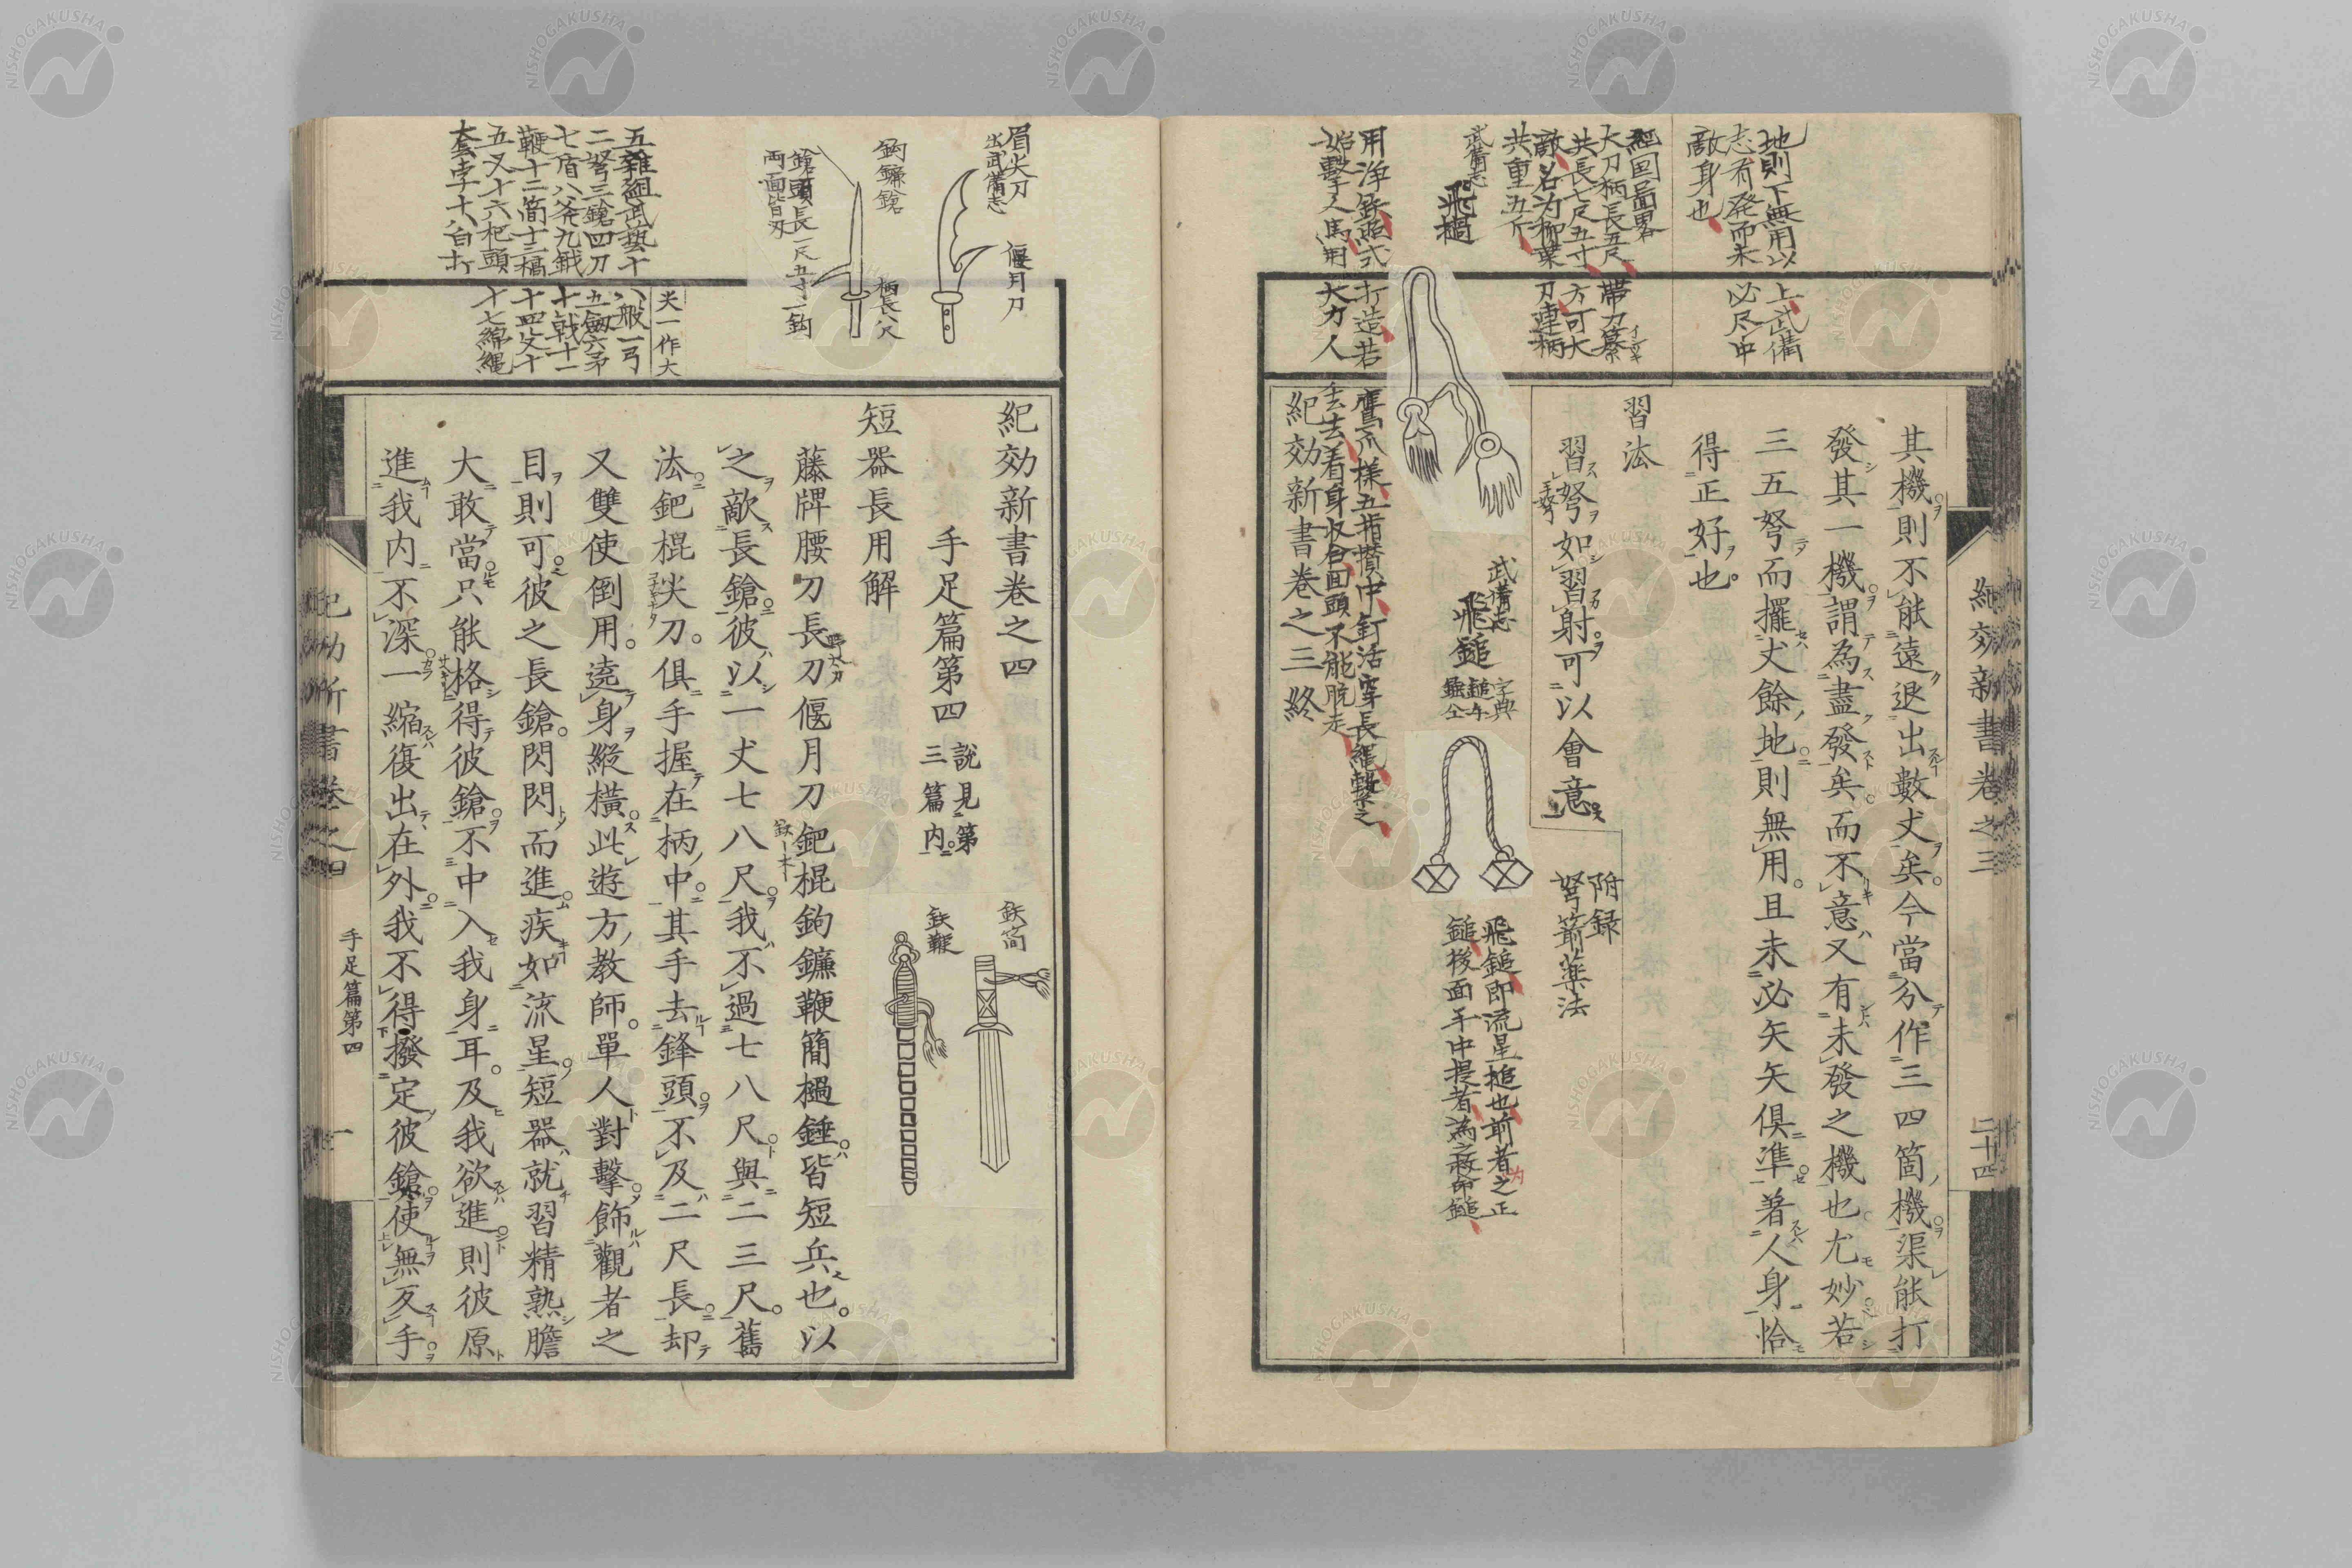 紀効新書卷之三
二十四
地則下無用以
志有発而未
敵身也
上武備
必尽中
其機則不能遠退出數丈矣今當分作三四箇機渠能打
發其一機謂為盡發矣而不意又有未發之機也尤妙若
三五弩而擺丈餘地則無用且未必矢矢俱準著人身恰
得正好也
習法
習弩如習射可以會意
附録
弩箭薬法
経国
大刀柄長五尺
共長七尺五寸
敵名为柳葉
共重五斤
帯刀
方可大
刀連柄
武備志
飛檛
用浄鉄照式
始擊人馬用
打造若
大力人
鷹爪樣五指攢中釘活穿長繩繫之
丟去着身收合回頭不能脱走
武備志
飛鎚
字典
飛鎚即流星搥也前者之正
鎚後面手中提者為之救命鎚
紀効新書卷之三終
眉尖刀
出武備志
偃月刀
鈎鐮鎗
柄長八尺
鎗頭長一尺五寸一鈎
両面皆刃
尖一作大
五雜組武藝十
二弩三鎗四刀
七盾八斧九鉞
鞭十二簡十三檛
五叉十六杷頭
套孛十八白打
八般一弓
五劔六矛
十戟十一
十四殳十
十七綿縄
紀効新書卷之四
手足篇第四
説見第
三篇内
鉄簡
鉄鞭
短器長用解
藤牌腰刀長刀偃月刀鈀棍鉤鐮鞭簡檛錘皆短兵也以
之敵長鎗彼以一丈七八尺我不過七八尺與二三尺舊
法鈀棍尖刀俱手握在柄中其手去鋒頭不及二尺長却
又雙使倒用遶身縱橫此遊方教師單人對擊飾觀者之
目則可彼之長鎗閃閃而進疾如流星短器就習精熟膽
大敢當只能格得彼鎗不中入我身耳及我欲進則彼原
進我内不深一縮復出在外我不得撥定彼鎗使無反手
紀効新書卷之四
手足篇第四
一
NISHOGAKUSHA